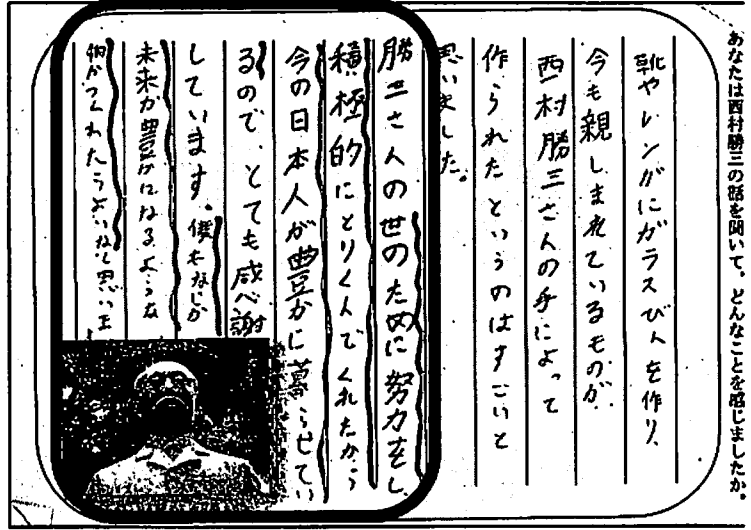 あなたは西村勝三の話を聞いて、どんなことを感じましたか。
靴やレンガにガラスびんを作り、
今も親しまれているものが、
西村勝三さんの手によって
作られたというのはすごいと
思いました。
勝三さんの世のために努力をし、
積極的にとりくんでくれたから
今の日本人が豊かに暮らせてい
るので、とても感謝
しています。僕も
未来が豊かになるような
何かつくれたらよいなと思いま